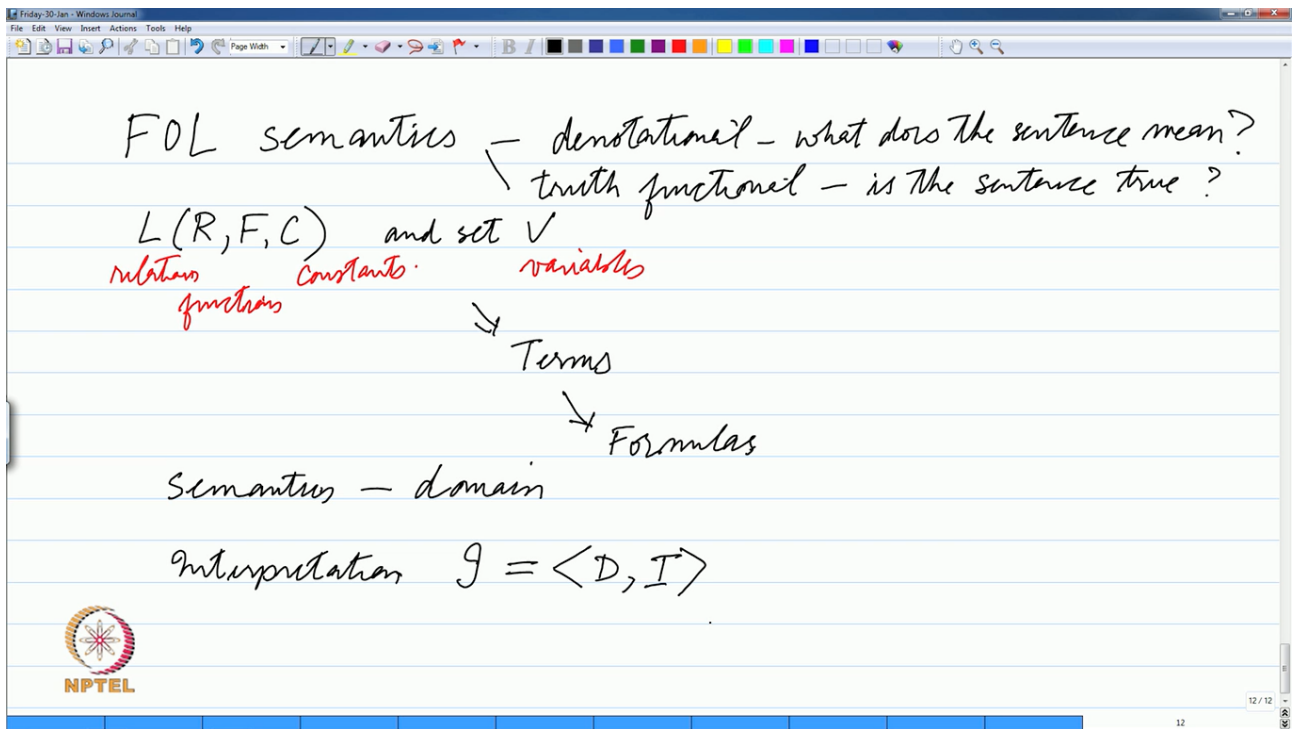 Friday-30-Jan - Windows Journal
File Edit View Insert Actions Tools Help
Page Width B I
FOL semantics - denotational - what does the sentence mean?
\ truth functional - is the sentence true ?
L(R, F, C) and set V
relations constants. variables
functions
↘
Terms
↘
Formulas
Semantics - domain
Interpretation I = <D, I>
NPTEL
12 / 12
12